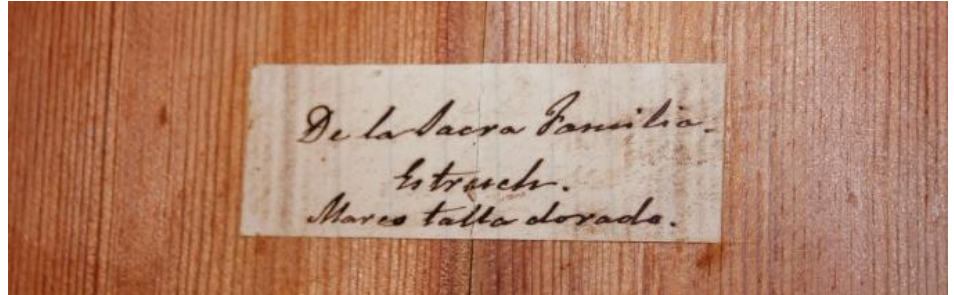 De la Sacra Familia.
Estruch.
Marco talla dorado.